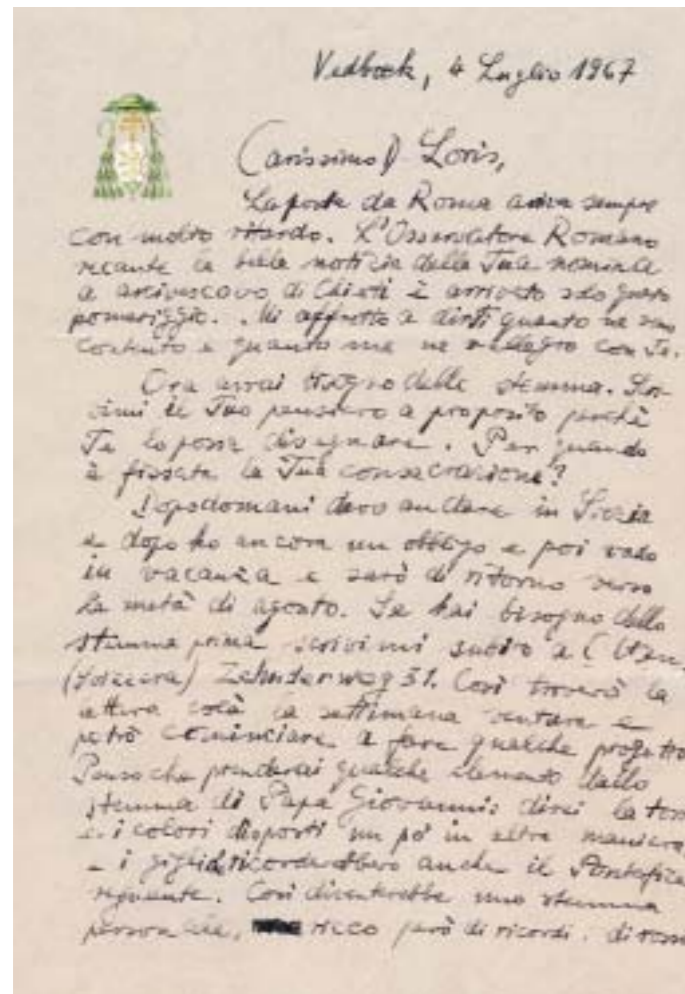 Vedbaek, 4 Luglio 1967
Carissimo Loris,
La posta da Roma arriva sempre
con molto ritardo. L'Osservatore Romano
recante la bella notizia della Tua nomina
a arcivescovo di Chieti è arrivato solo questo
pomeriggio. Mi affretto a dirti quanto ne sono
contento e quanto me ne rallegro con Te.
Ora avrai bisogno dello stemma. Scri-
vimi il Tuo pensiero a proposito perchè
Te lo possa disegnare. Per quando
è fissata la Tua consacrazione?
Dopodomani devo andare in Svezia
e dopo ho ancora un obbligo e poi vado
in vacanza e sarò di ritorno verso
la metà di agosto. Se hai bisogno dello
stemma prima scrivimi subito a Olten,
(Svizzera) Zehnderweg 31. Così troverò la
lettera colà la settimana ventura e
potrò cominciare a fare qualche progetto
Penso che prenderai qualche elemento dallo
stemma di Papa Giovanni: direi la torre
e i colori disposti un po' in altra maniera
e i gigli ricorderebbero anche il Pontefice
regnante. Così diventerebbe uno stemma
personale, ricco però di ricordi.